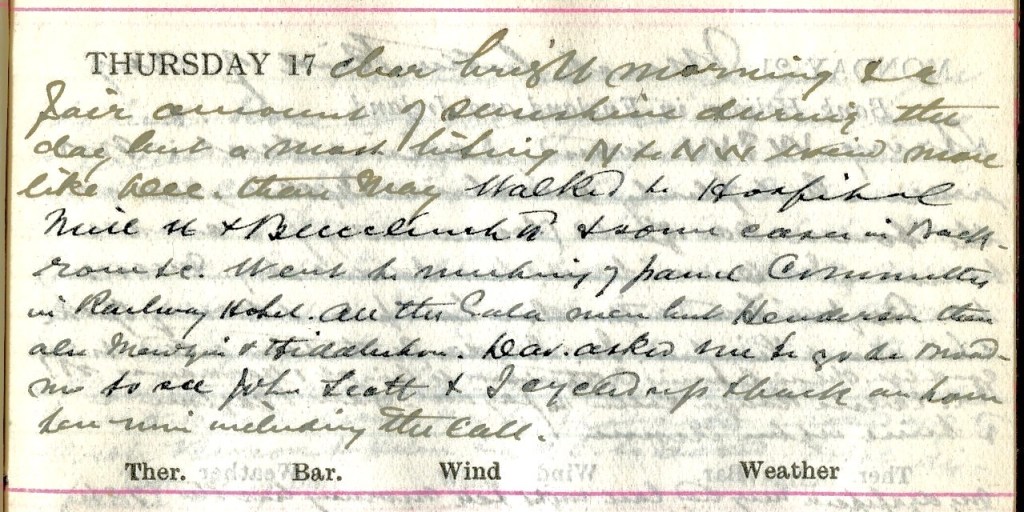 THURSDAY 17 clear bright morning & a
fair amount of sunshine during the
day but a most biting N to NW wind more
like Dec. than May Walked to Hospital
Mill H & & some cases in Back-
row &c. Went to meeting of panel Committee
in Railway Hotel. All the Gala men but Henderson then
also & Hiddleston. Dav. asked me to go to
to see John Scott & I cycled up & back an hour
ten min including the call.
Ther. Bar. Wind Weather